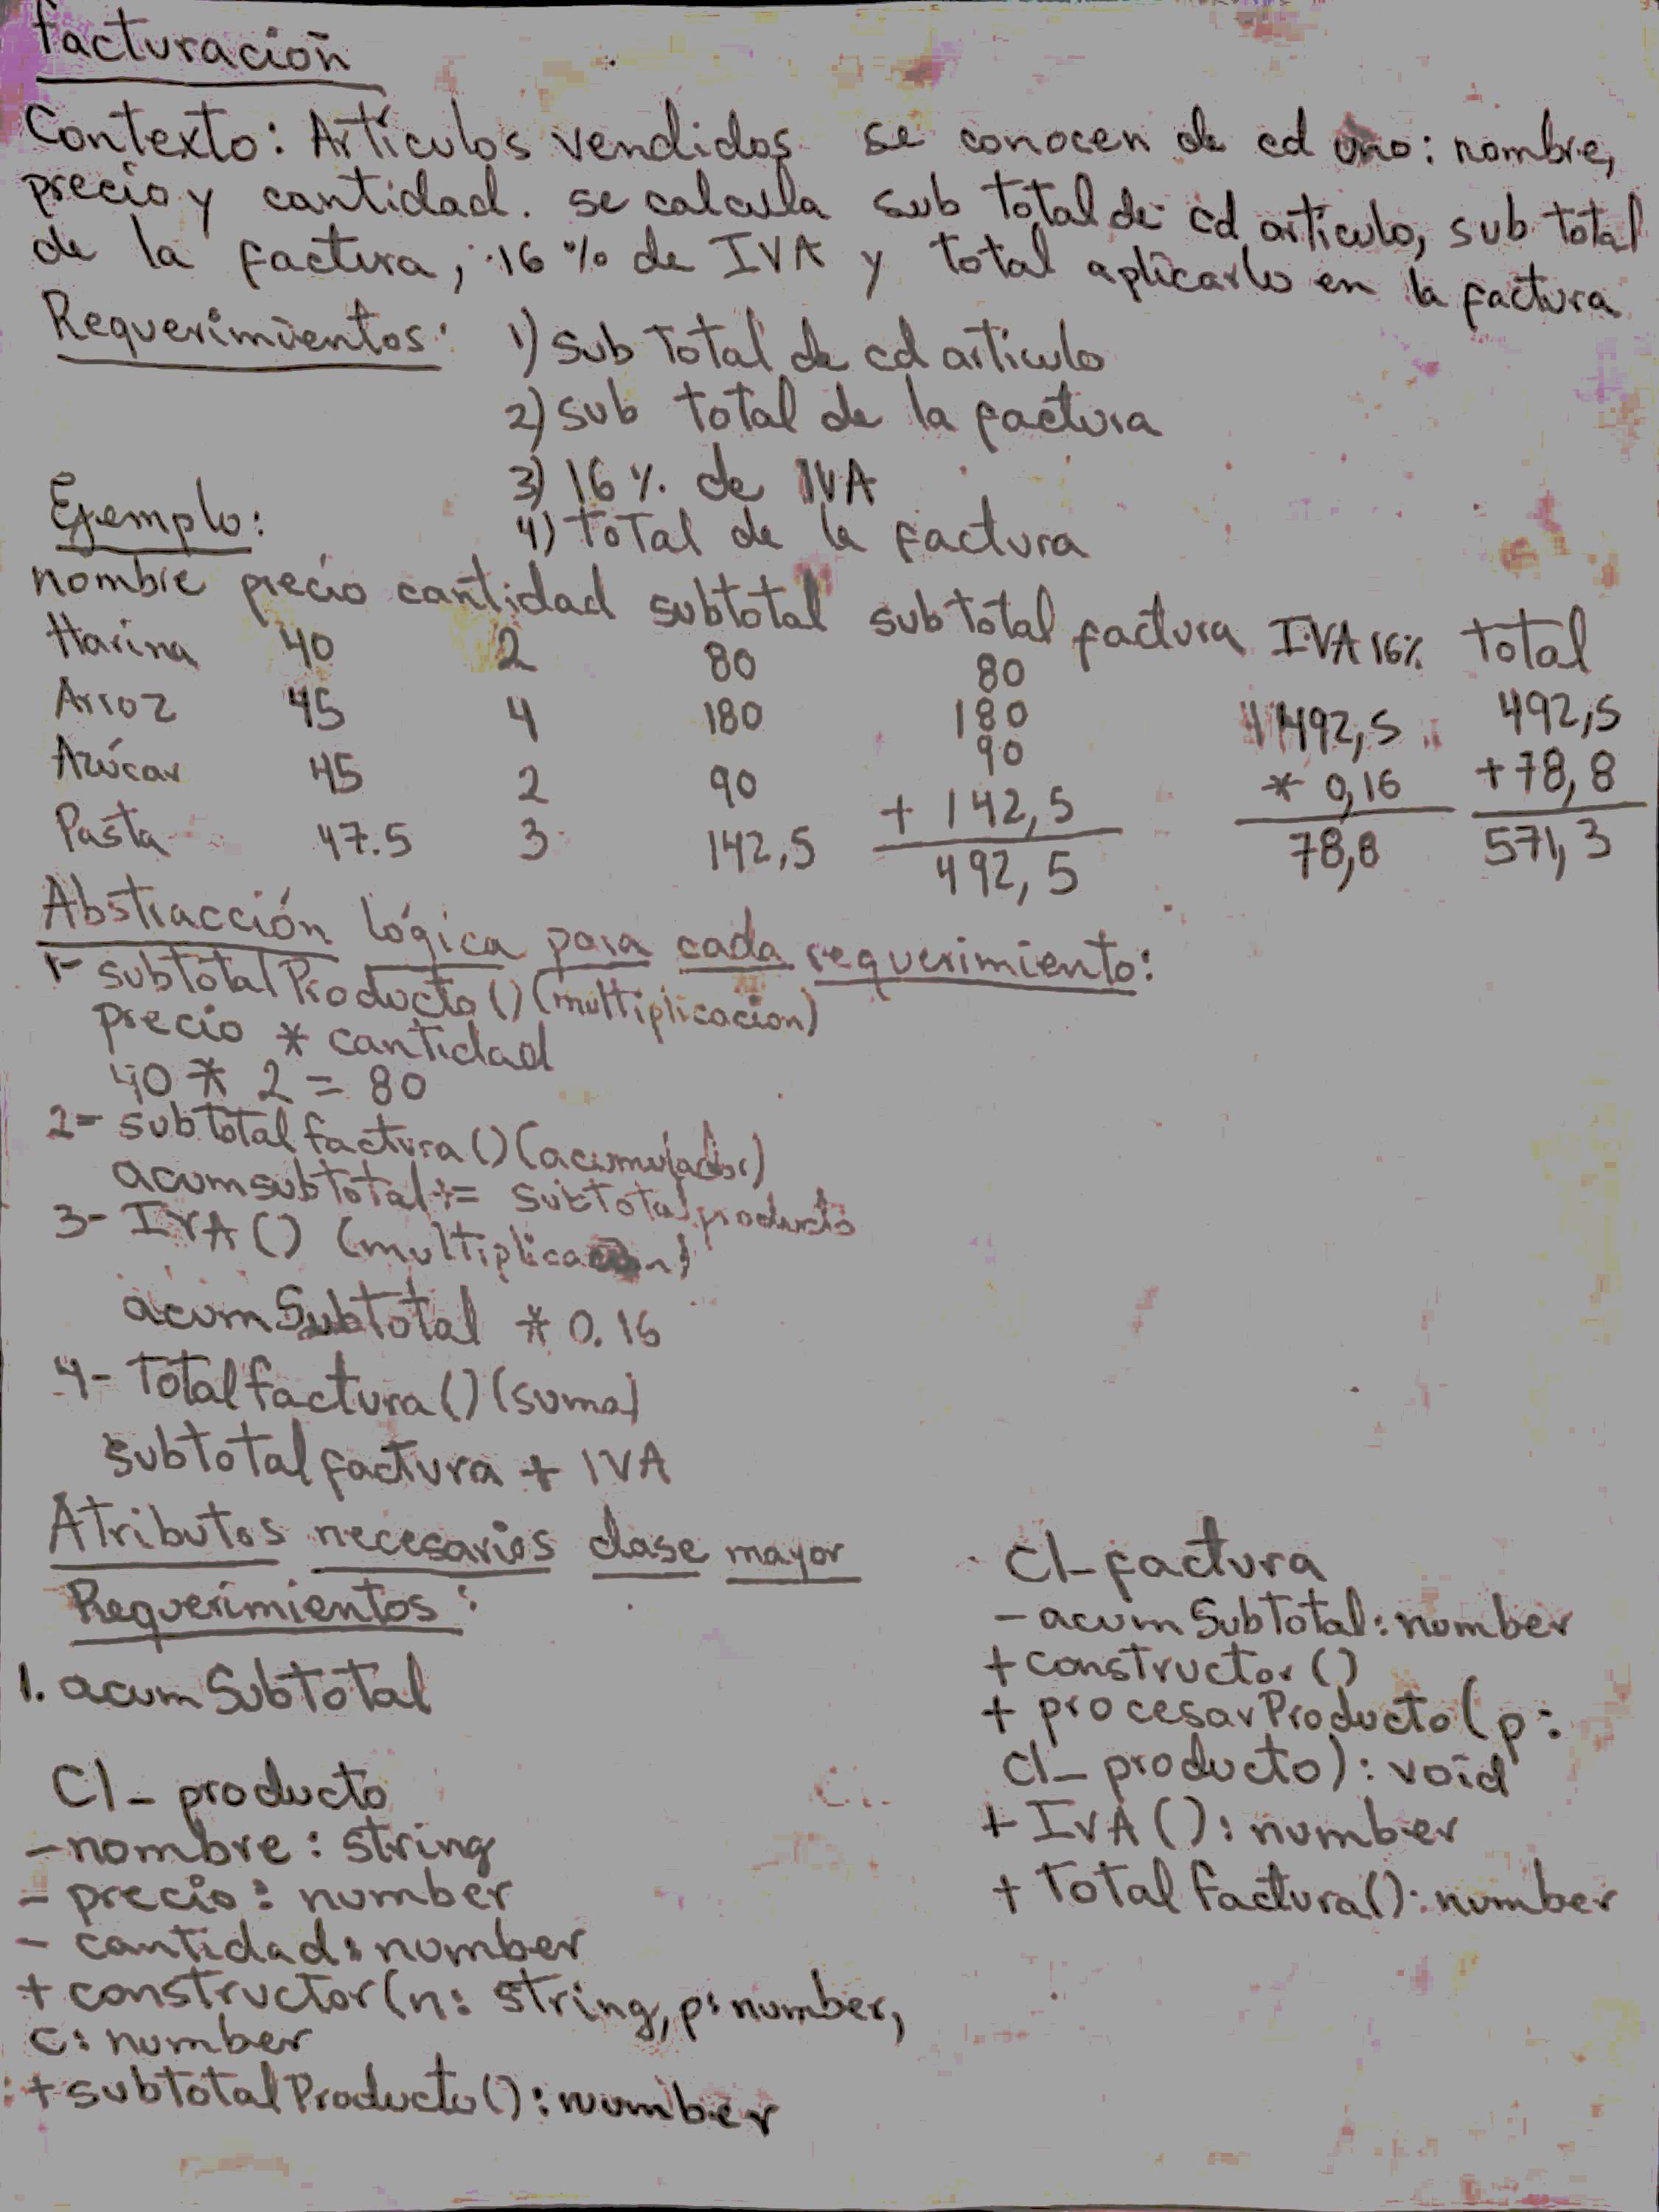 facturación
Contexto: Artículos vendidos se conocen de cd uno: nombre,
precio y cantidad. se calcula sub total de cd artículo, sub total
de la factura, 16 % de IVA y total aplicarlo en la factura
Requerimientos: 1) sub Total de cd artículo
2) sub total de la factura
3) 16 % de IVA
4) total de la factura
Ejemplo:
nombre precio cantidad subtotal subtotal factura IVA 16% total
Harina 40 2 80 80
Arroz 45 4 180 180 492,5 492,5
Azúcar 45 2 90 90 * 0,16 +78,8
Pasta 47.5 3 142,5 + 142,5 78,8 571,3
492,5
Abstracción lógica para cada requerimiento:
1- subtotalProducto() (multiplicacion)
precio * cantidad
40 * 2 = 80
2- subtotalfactura() (acumulador)
acumsubtotal += subtotalproducto
3- IVA() (multiplicación)
acumSubTotal * 0.16
4- Totalfactura() (suma)
subtotalfactura + IVA
Atributos necesarios clase mayor
Requerimientos:
1. acumSubTotal
Cl_producto
- nombre: string
- precio: number
- cantidad: number
+ constructor(n: string, p: number,
c: number
+ subtotalProducto(): number
Cl_factura
- acumSubTotal: number
+ constructor()
+ procesarProducto(p:
Cl_producto): void
+ IVA(): number
+ Totalfactura(): number